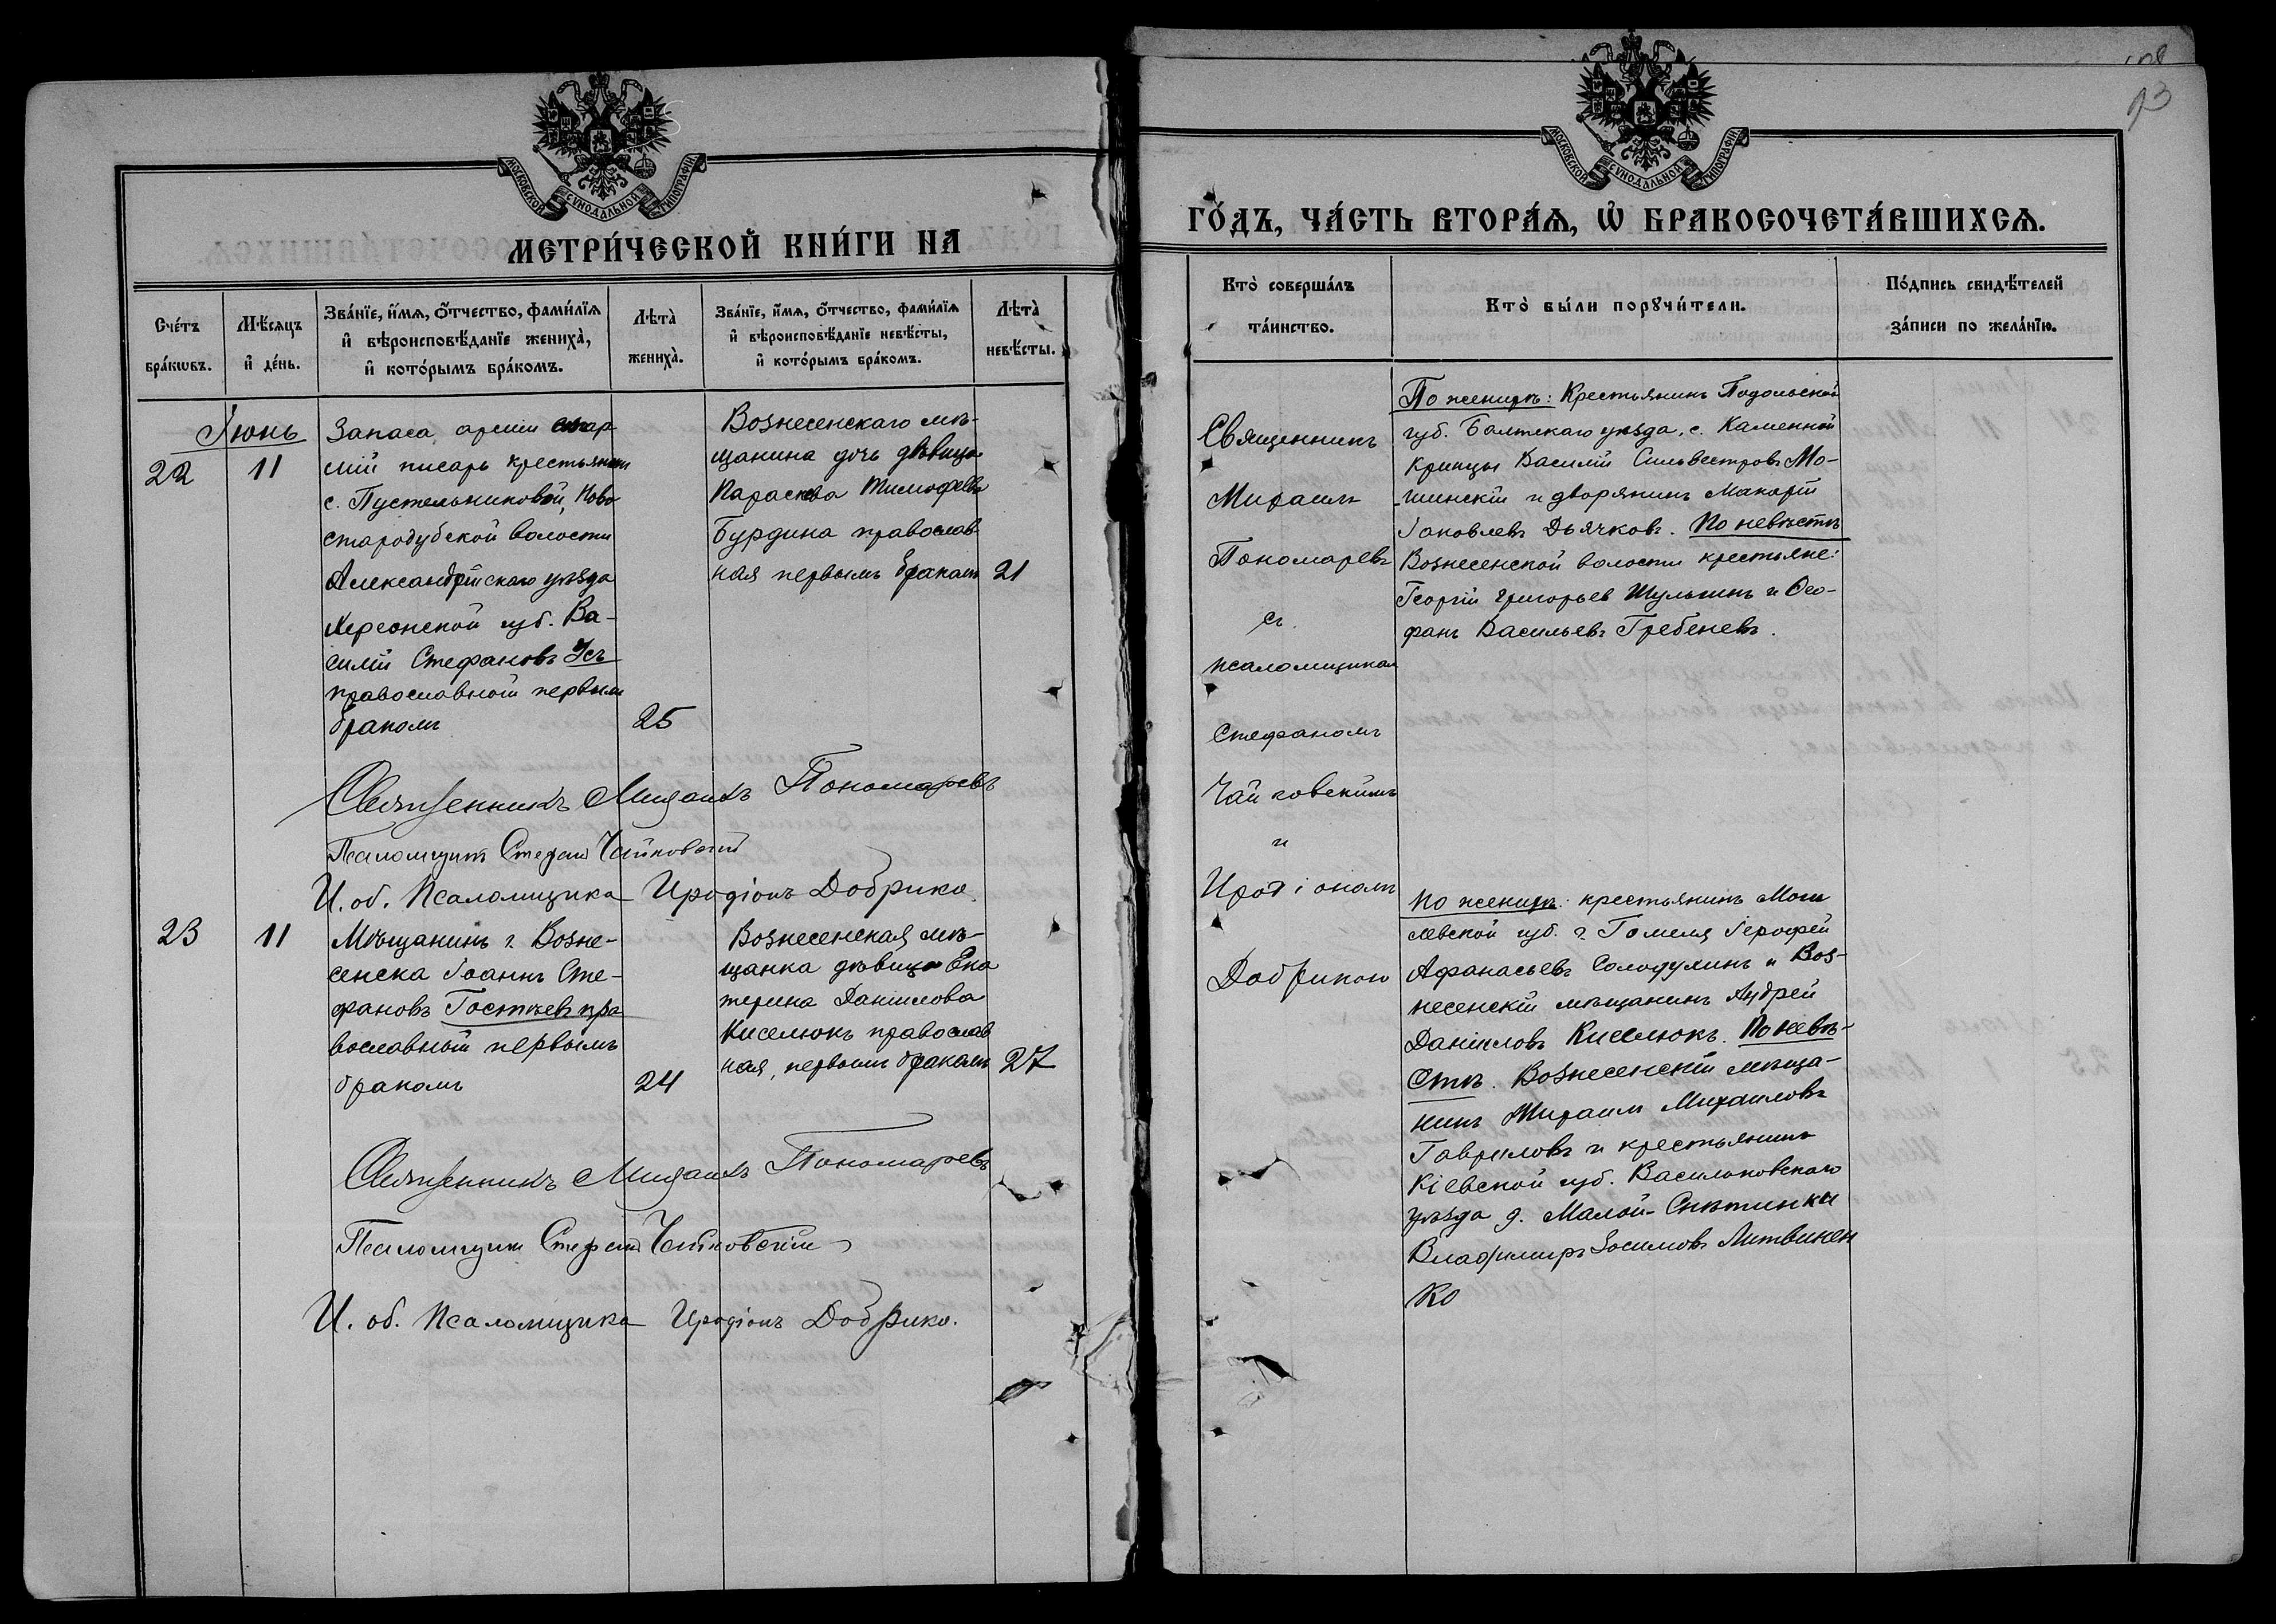 МОСКОВСКОЙ СѴНОДАЛЬНОЙ ТИПОГРАФІИ
МЕТРИ́ЧЕСКОЙ КНИ́ГИ НА
Сче́тъ бра́кωвъ.
Мѣ́сяцъ и҆ де́нь.
Зва́нїе, и҆́мѧ, ѻ҆́тчество, фами́лїѧ
и҆ вѣроисповѣ́данїе жениха̀,
и҆ кото́рымъ бра́комъ.
Лѣта̀ жениха̀.
Зва́нїе, и҆́мѧ, ѻ҆́тчество, фами́лїѧ
и҆ вѣроисповѣ́данїе невѣ́сты,
и҆ кото́рымъ бра́комъ.
Лѣта̀ невѣ́сты.
Іюнь
22
11
Запаса арміи стар-
шій писарь крестьянин
с. Пустельниковой, Ново
стародубской волости
Александрійскаго уѣзда
Херсонской губ. Ва-
силій Стефановъ Усъ
православной первым
бракомъ
25
Вознесенскаго мѣ-
щанина дочь дѣвица
Параскева Тимофеева
Бурдина православ-
ная первымъ бракомъ
21
Священникъ Михаилъ Пономаревъ
Псаломщикъ Стефанъ Чайковскій
И. об. Псаломщика Иродіонъ Добрико.
23
11
Мѣщанинъ г. Возне-
сенска Іоаннъ Сте-
фановъ Гостевъ пра
вославный первымъ
бракомъ
24
Вознесенская мѣ-
щанка дѣвица Ека
терина Даніилова
Киселюкъ православ
ная, первымъ бракомъ
27
Священникъ Михаилъ Пономаревъ
Псаломщикъ Стефанъ Чайковскій
И. об. Псаломщика Иродіонъ Добрико.
93
МОСКОВСКОЙ СѴНОДАЛЬНОЙ ТИПОГРАФІИ
ГО́ДЪ, ЧА́СТЬ ВТОРА́Ѧ, Ѽ БРАКОСОЧЕТА́ВШИХСѦ.
Кто̀ соверша́лъ
та́инство.
Кто̀ бы́ли порꙋчи́тели.
По́дпись свидѣ́телей
за́писи по жела́нїю.
Священникъ
Михаилъ
Пономаревъ
съ
псаломщикам
Стефаномъ
Чайковскимъ
и
Иродіономъ
Добрикою
По женихѣ: Крестьянинъ Подольской
губ. Балтскаго уѣзда, с. Каменной
Криницы Василій Сильвестровъ Мо-
шинскій и дворянинъ Макарій
Іаковлевъ Дьячковъ. По невѣстѣ
Вознесенской волости крестьяне:
Георгій Григорьев Шульгинъ и Ѳео-
фанъ Васильевъ Гребеневъ.
По женихѣ: крестьянинъ Моги
левской губ. г. Гомеля Іерофей
Афанасьевъ Солодухинъ и Воз-
несенскій мѣщанинъ Андрей
Даніиловъ Киселюкъ. По невѣ-
стѣ. Вознесенскій мѣща-
нинъ Михаилъ Михаиловъ
Гавриловъ и крестьянинъ
Кіевской губ. Васильковскаго
уѣзда д. Малой-Снѣтинки
Владимиръ Зосимовъ Литвинен
ко